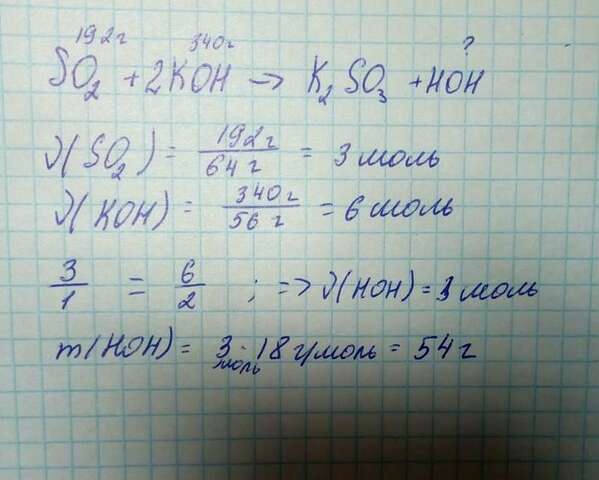 192г 340г ?
SO₂ + 2KOH → K₂SO₃ + HOH
ν(SO₂) = 192г / 64г = 3 моль
ν(KOH) = 340г / 56г = 6 моль
3/1 = 6/2 ; => ν(HOH) = 3 моль
m(HOH) = 3 моль · 18 г/моль = 54 г